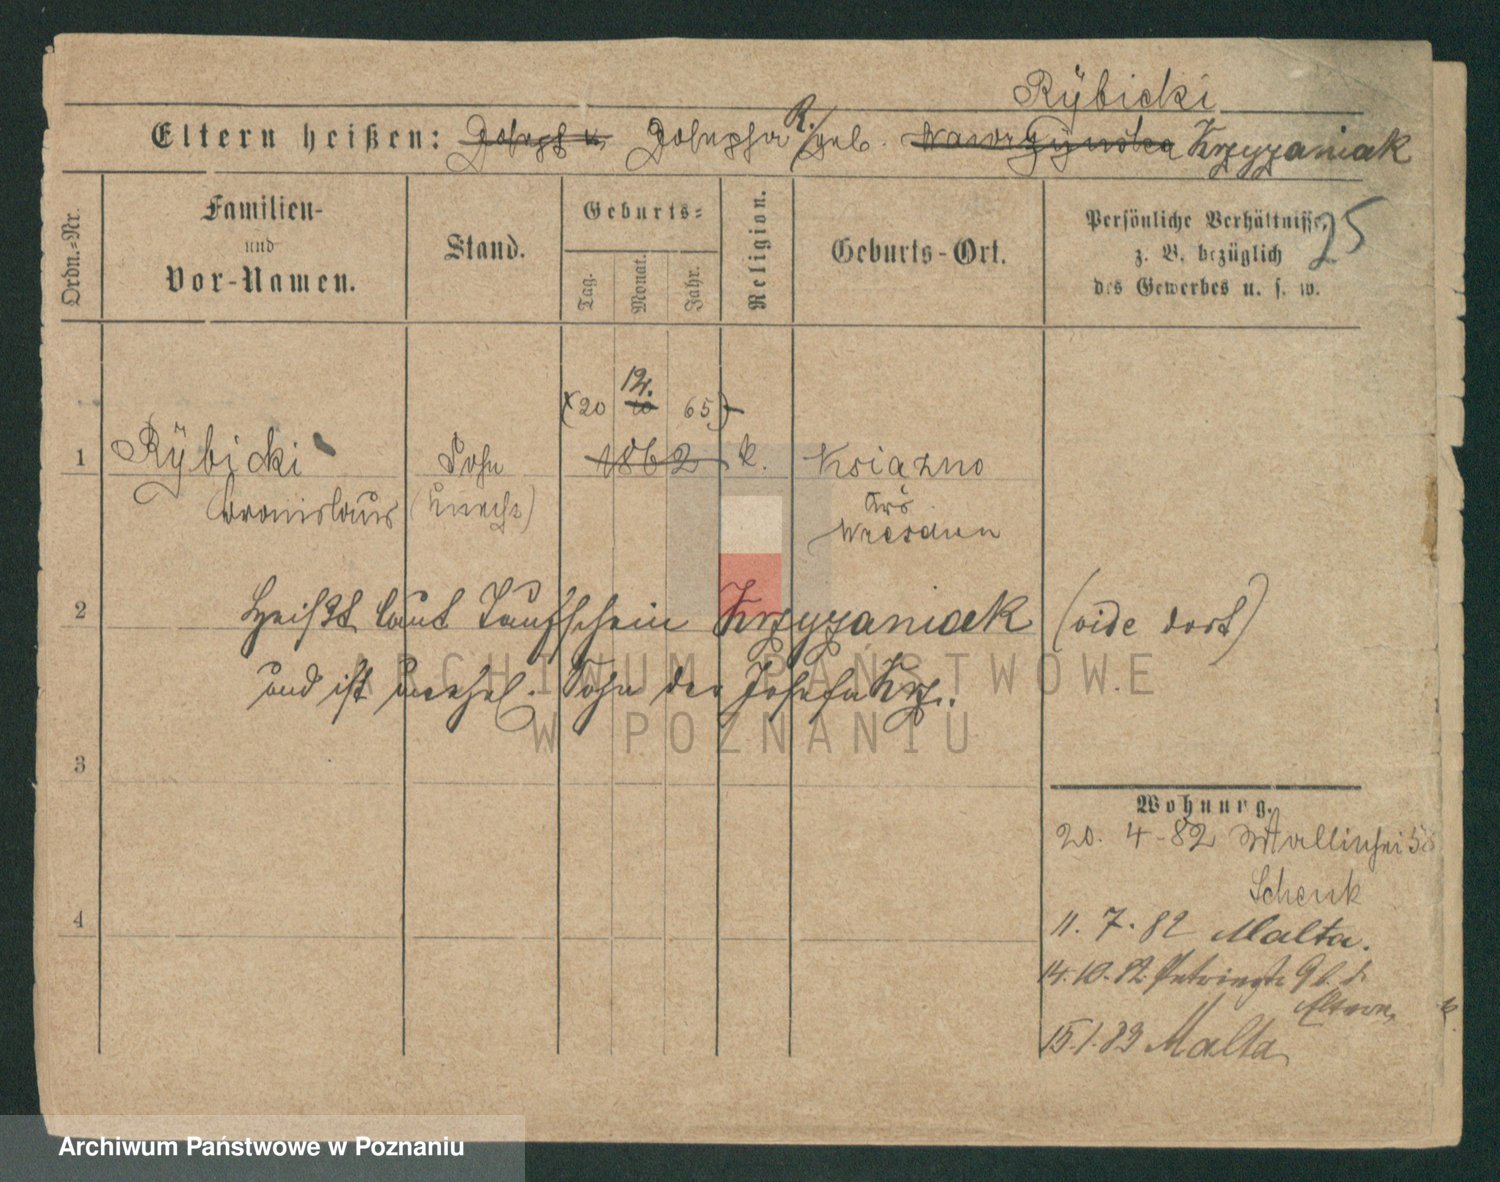 Rÿbicki
Eltern heißen: Joseph u. Josepha R./geb. Wawrzynska Krzyzaniak
Ordn.-Nr.
Familien-
und
Vor-Namen.
Stand.
Geburts-
Tag.
Monat.
Jahr.
Religion.
Geburts-Ort.
Persönliche Verhältnisse,
z. B. bezüglich
des Gewerbes u. s. w.
25
12.
(20 10 65)
1 Rÿbicki Sohn 1862 k. Ksiazno
Bronislaus (Knecht) Krs
Wreschen
2 Heißt laut Taufschein Krzyzaniak (vide dort)
und ist unehel. Sohn der Josefa Krz.
3
4
Wohnung.
20. 4-82 Wallischei 58
Schenk
11. 7. 82 Malta.
14. 10. 82. 9 b. d.
Eltern
15. 1. 83 Malta
ARCHIWUM PAŃSTWOWE
W POZNANIU
Archiwum Państwowe w Poznaniu